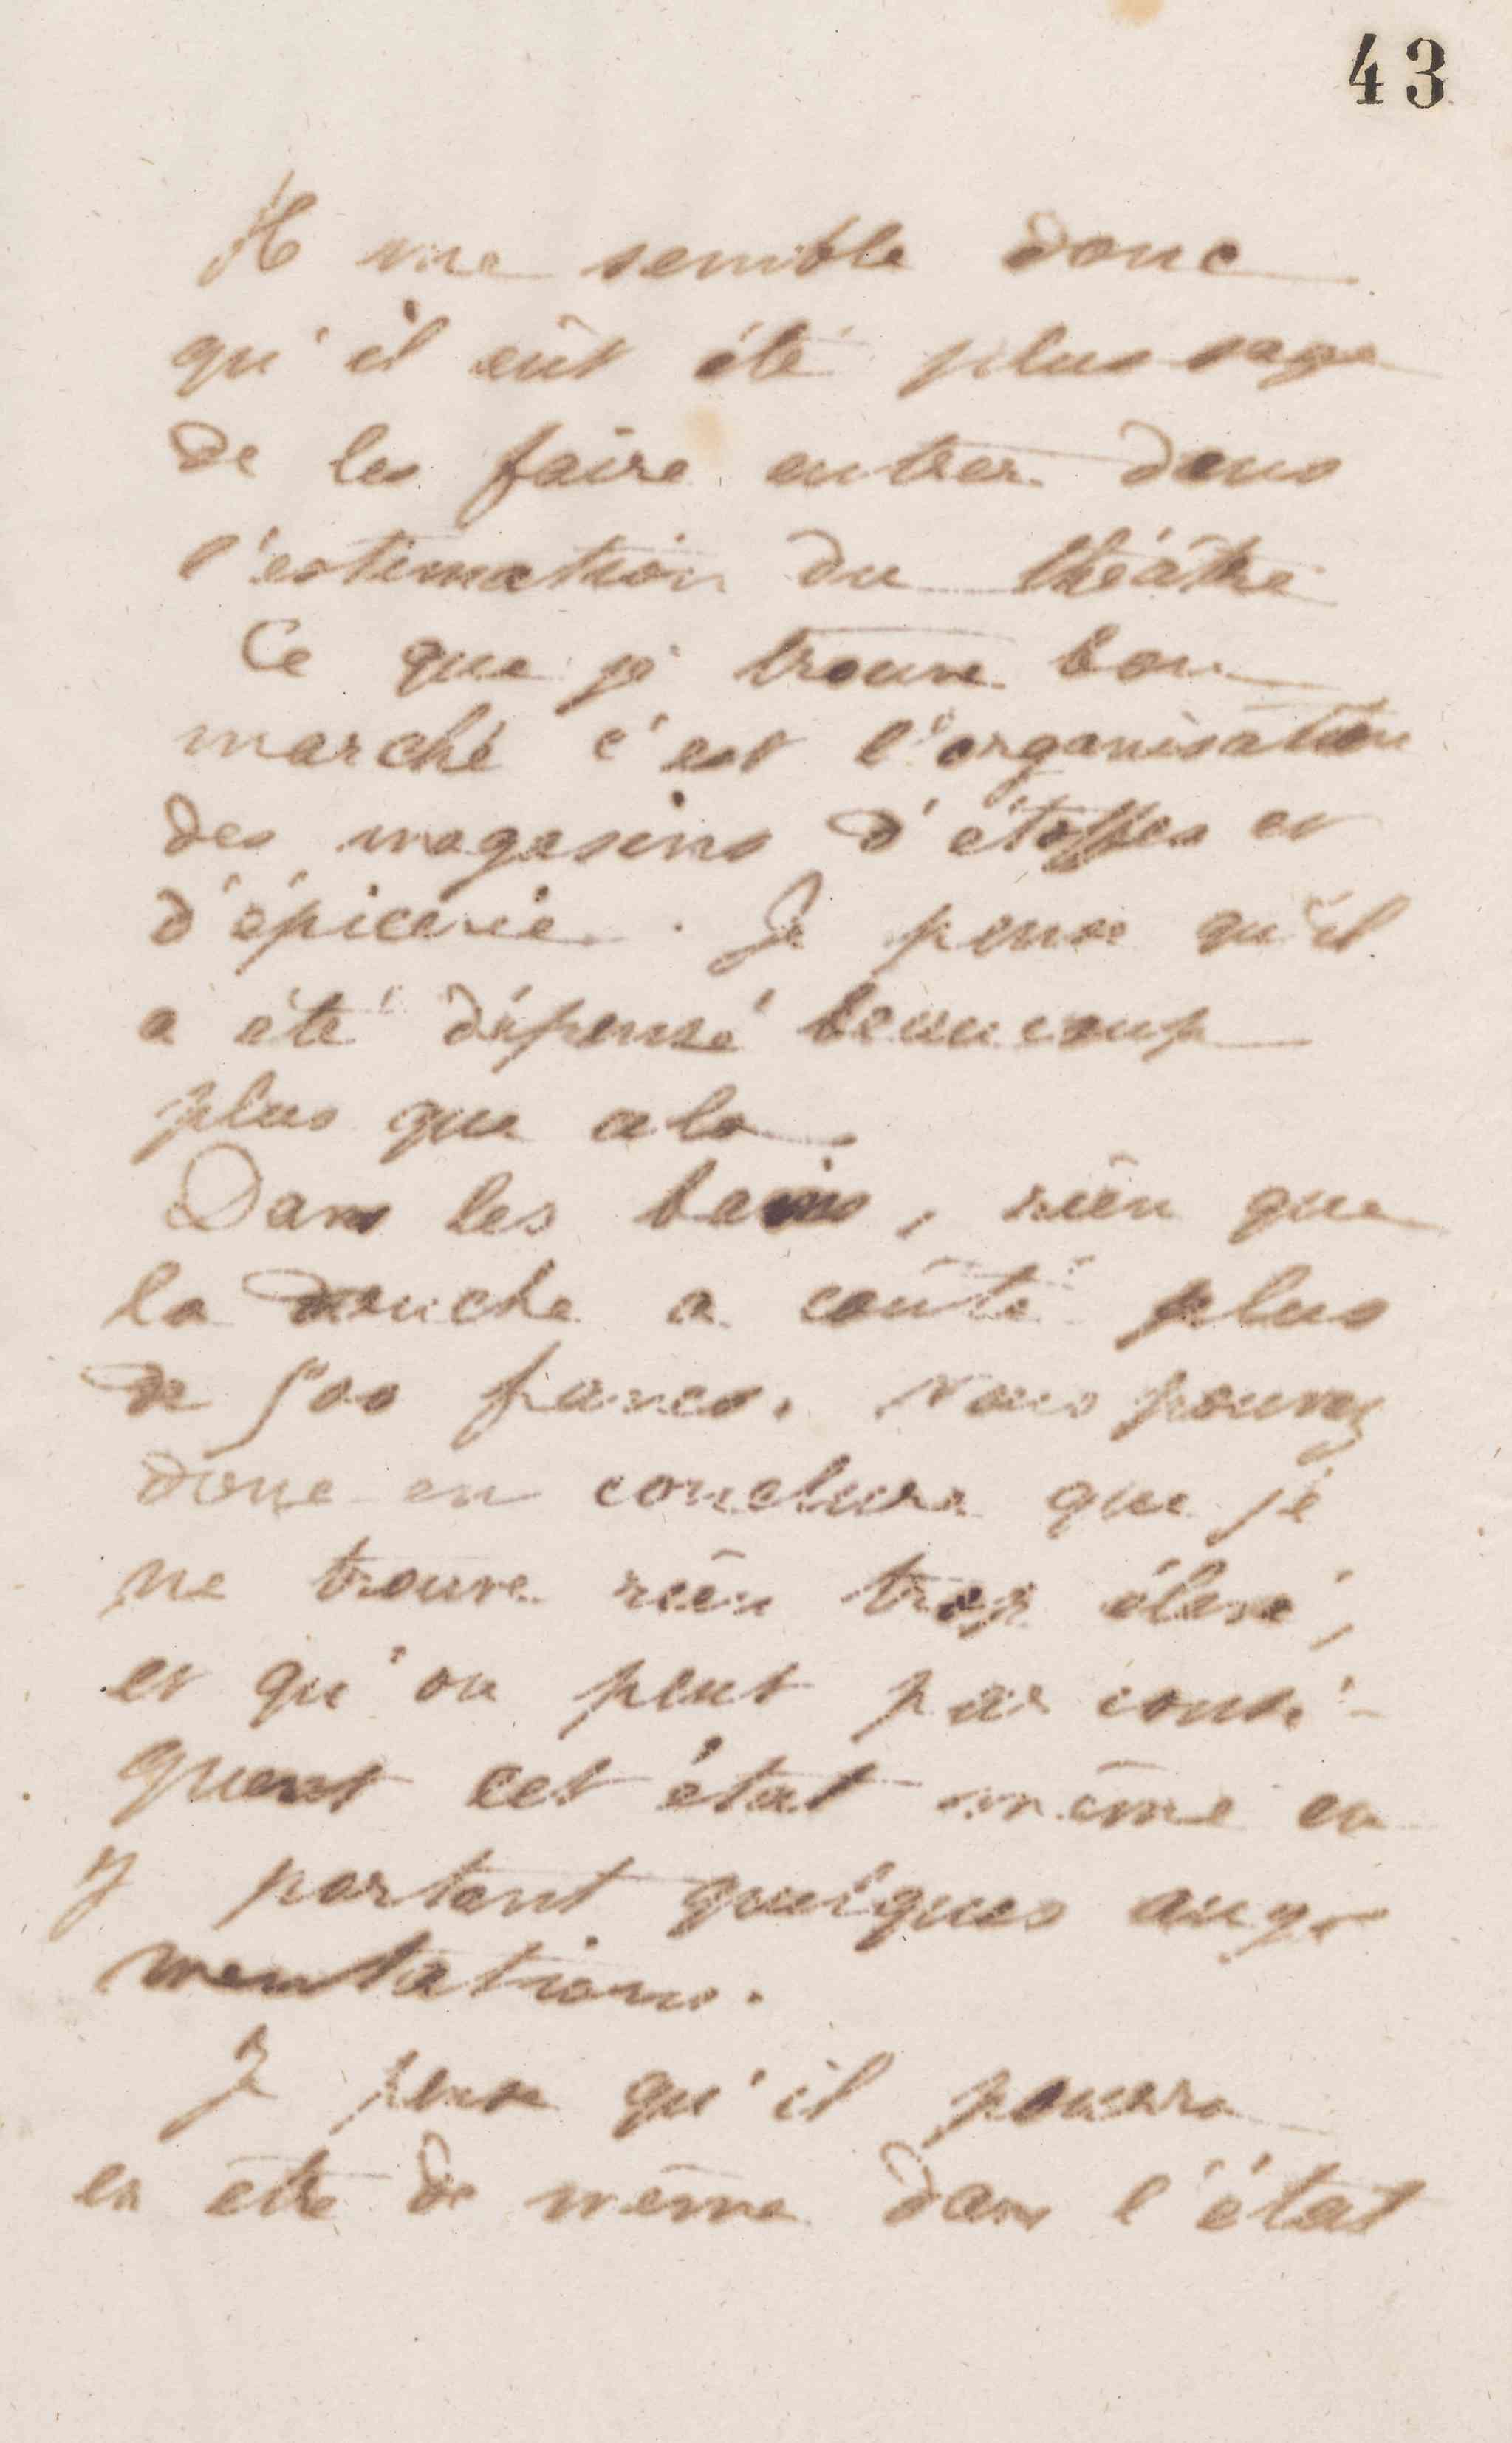 43
Il me semble donc
qu'il eût été plus sage
de les faire entrer dans
l'estimation du théâtre
Ce que je trouve bon
marché c'est l'organisation
des magasins d'étoffes et
d'épicerie. Je pense qu'il
a été dépensé beaucoup
plus que cela.
Dans les bains, rien que
la douche a coûté plus
de 500 francs. Vous pouvez
donc en conclure que je
ne trouve rien trop élevé,
et qu'on peut par consé-
quent cet état même en
y portant quelques aug-
mentations.
Je pense qu'il pourra
en être de même dans l'état